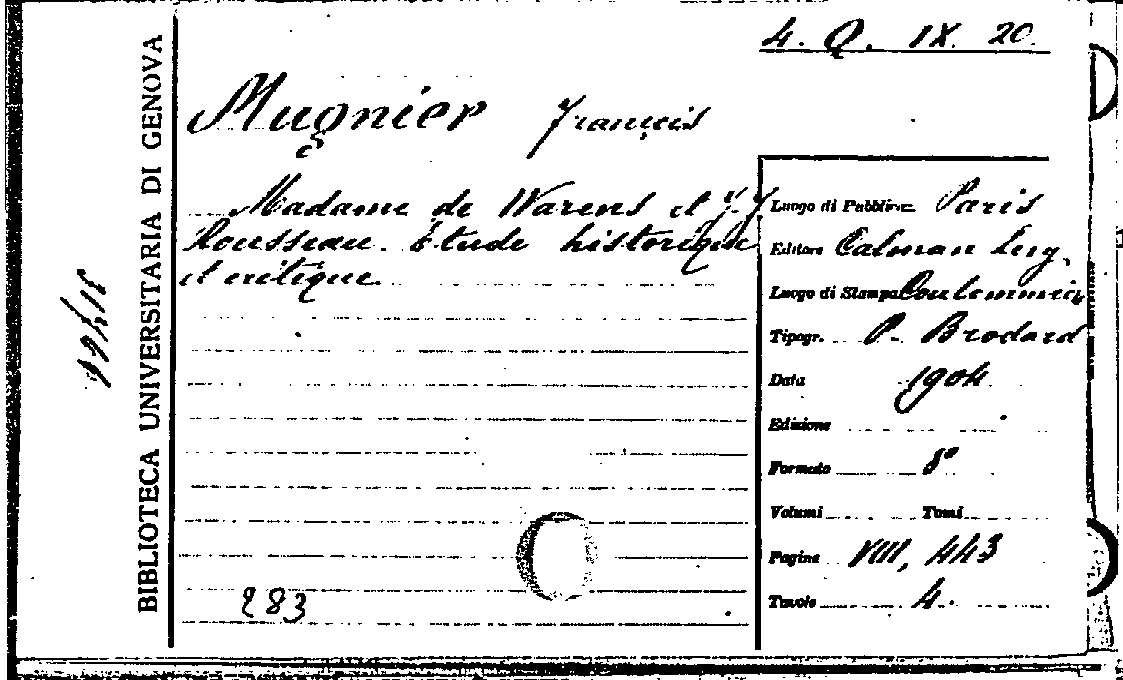 4. Q. IX. 20.
BIBLIOTECA UNIVERSITARIA DI GENOVA
Mugnier François
Madame de Warens et J. J.
Rousseau. Étude historique
et critique.
283
Luogo di Pubblic.ne Paris
Editore Calman Levy.
Luogo di Stampa Coulommiers
Tipogr. P. Brodard
Data 1904
Edizione
Formato 8°
Volumi Tomi
Pagine VIII, 443
Tavole 4.